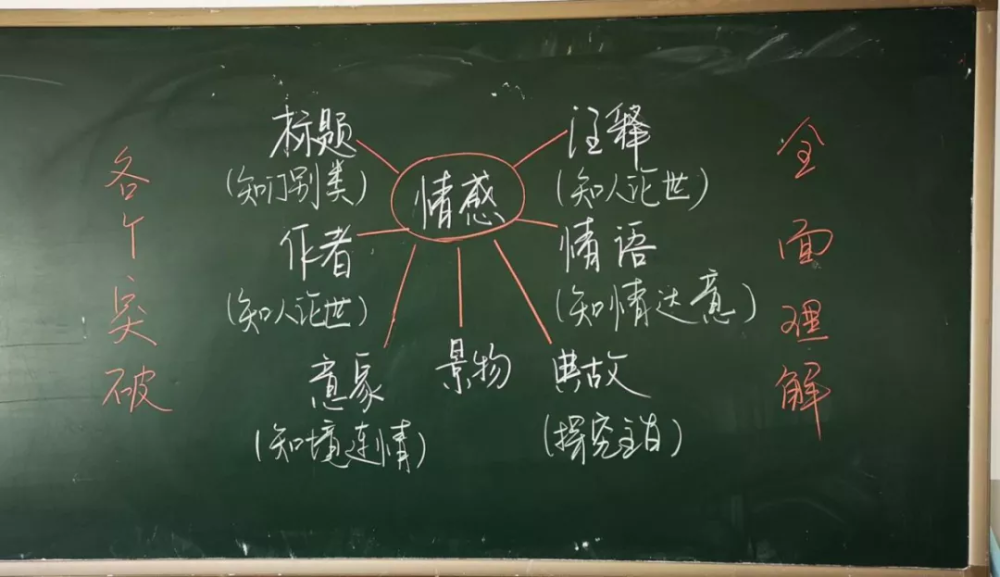 各个突破
标题
(知门别类)
作者
(知人论世)
意象
(知境连情)
情感
景物
注释
(知人论世)
情语
(知情达意)
典故
(探究主旨)
全面理解